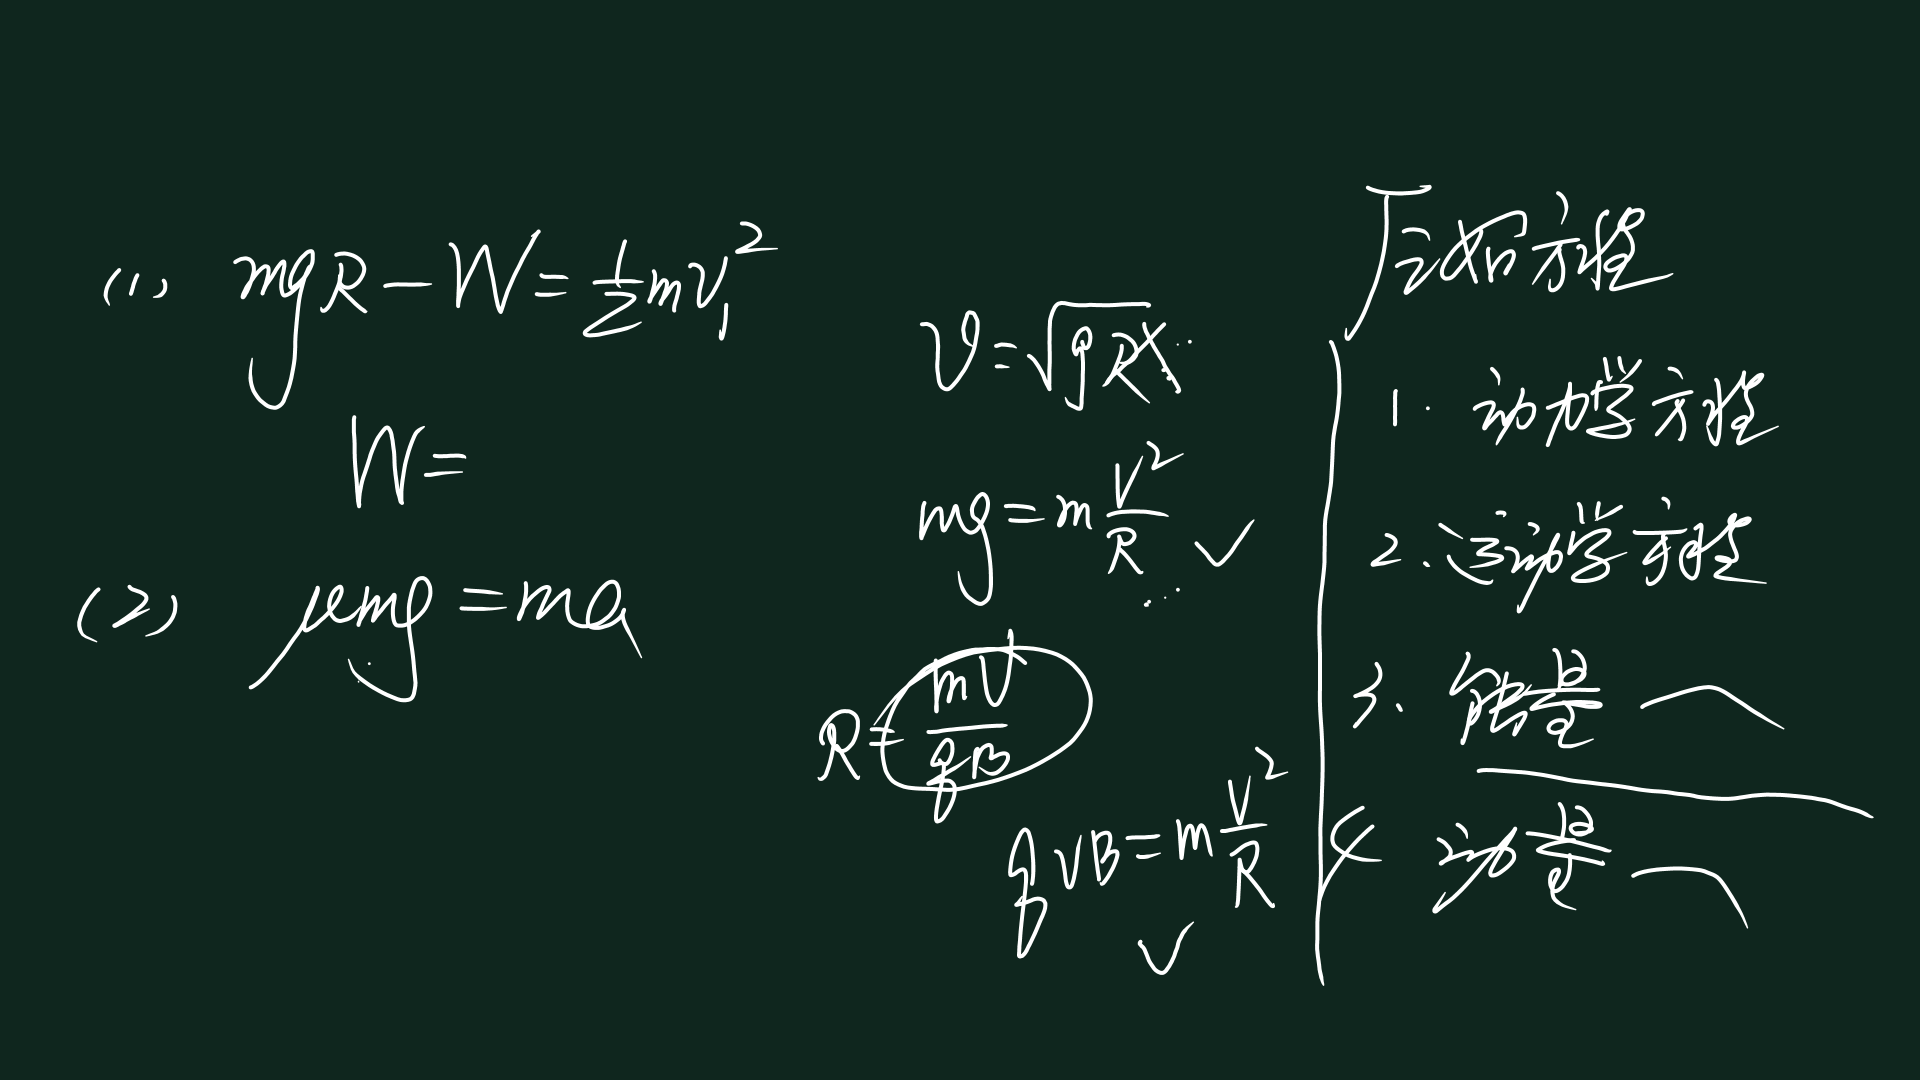 (1) mgR - W = 1/2 mv₁²
W =
(2) μmg = ma
v = √gR ×
mg = m V²/R ✓
R = mv/qB
qvB = m V²/R
✓
方程
1. 动力学方程
2. 运动学方程
3. 能量
4 动量